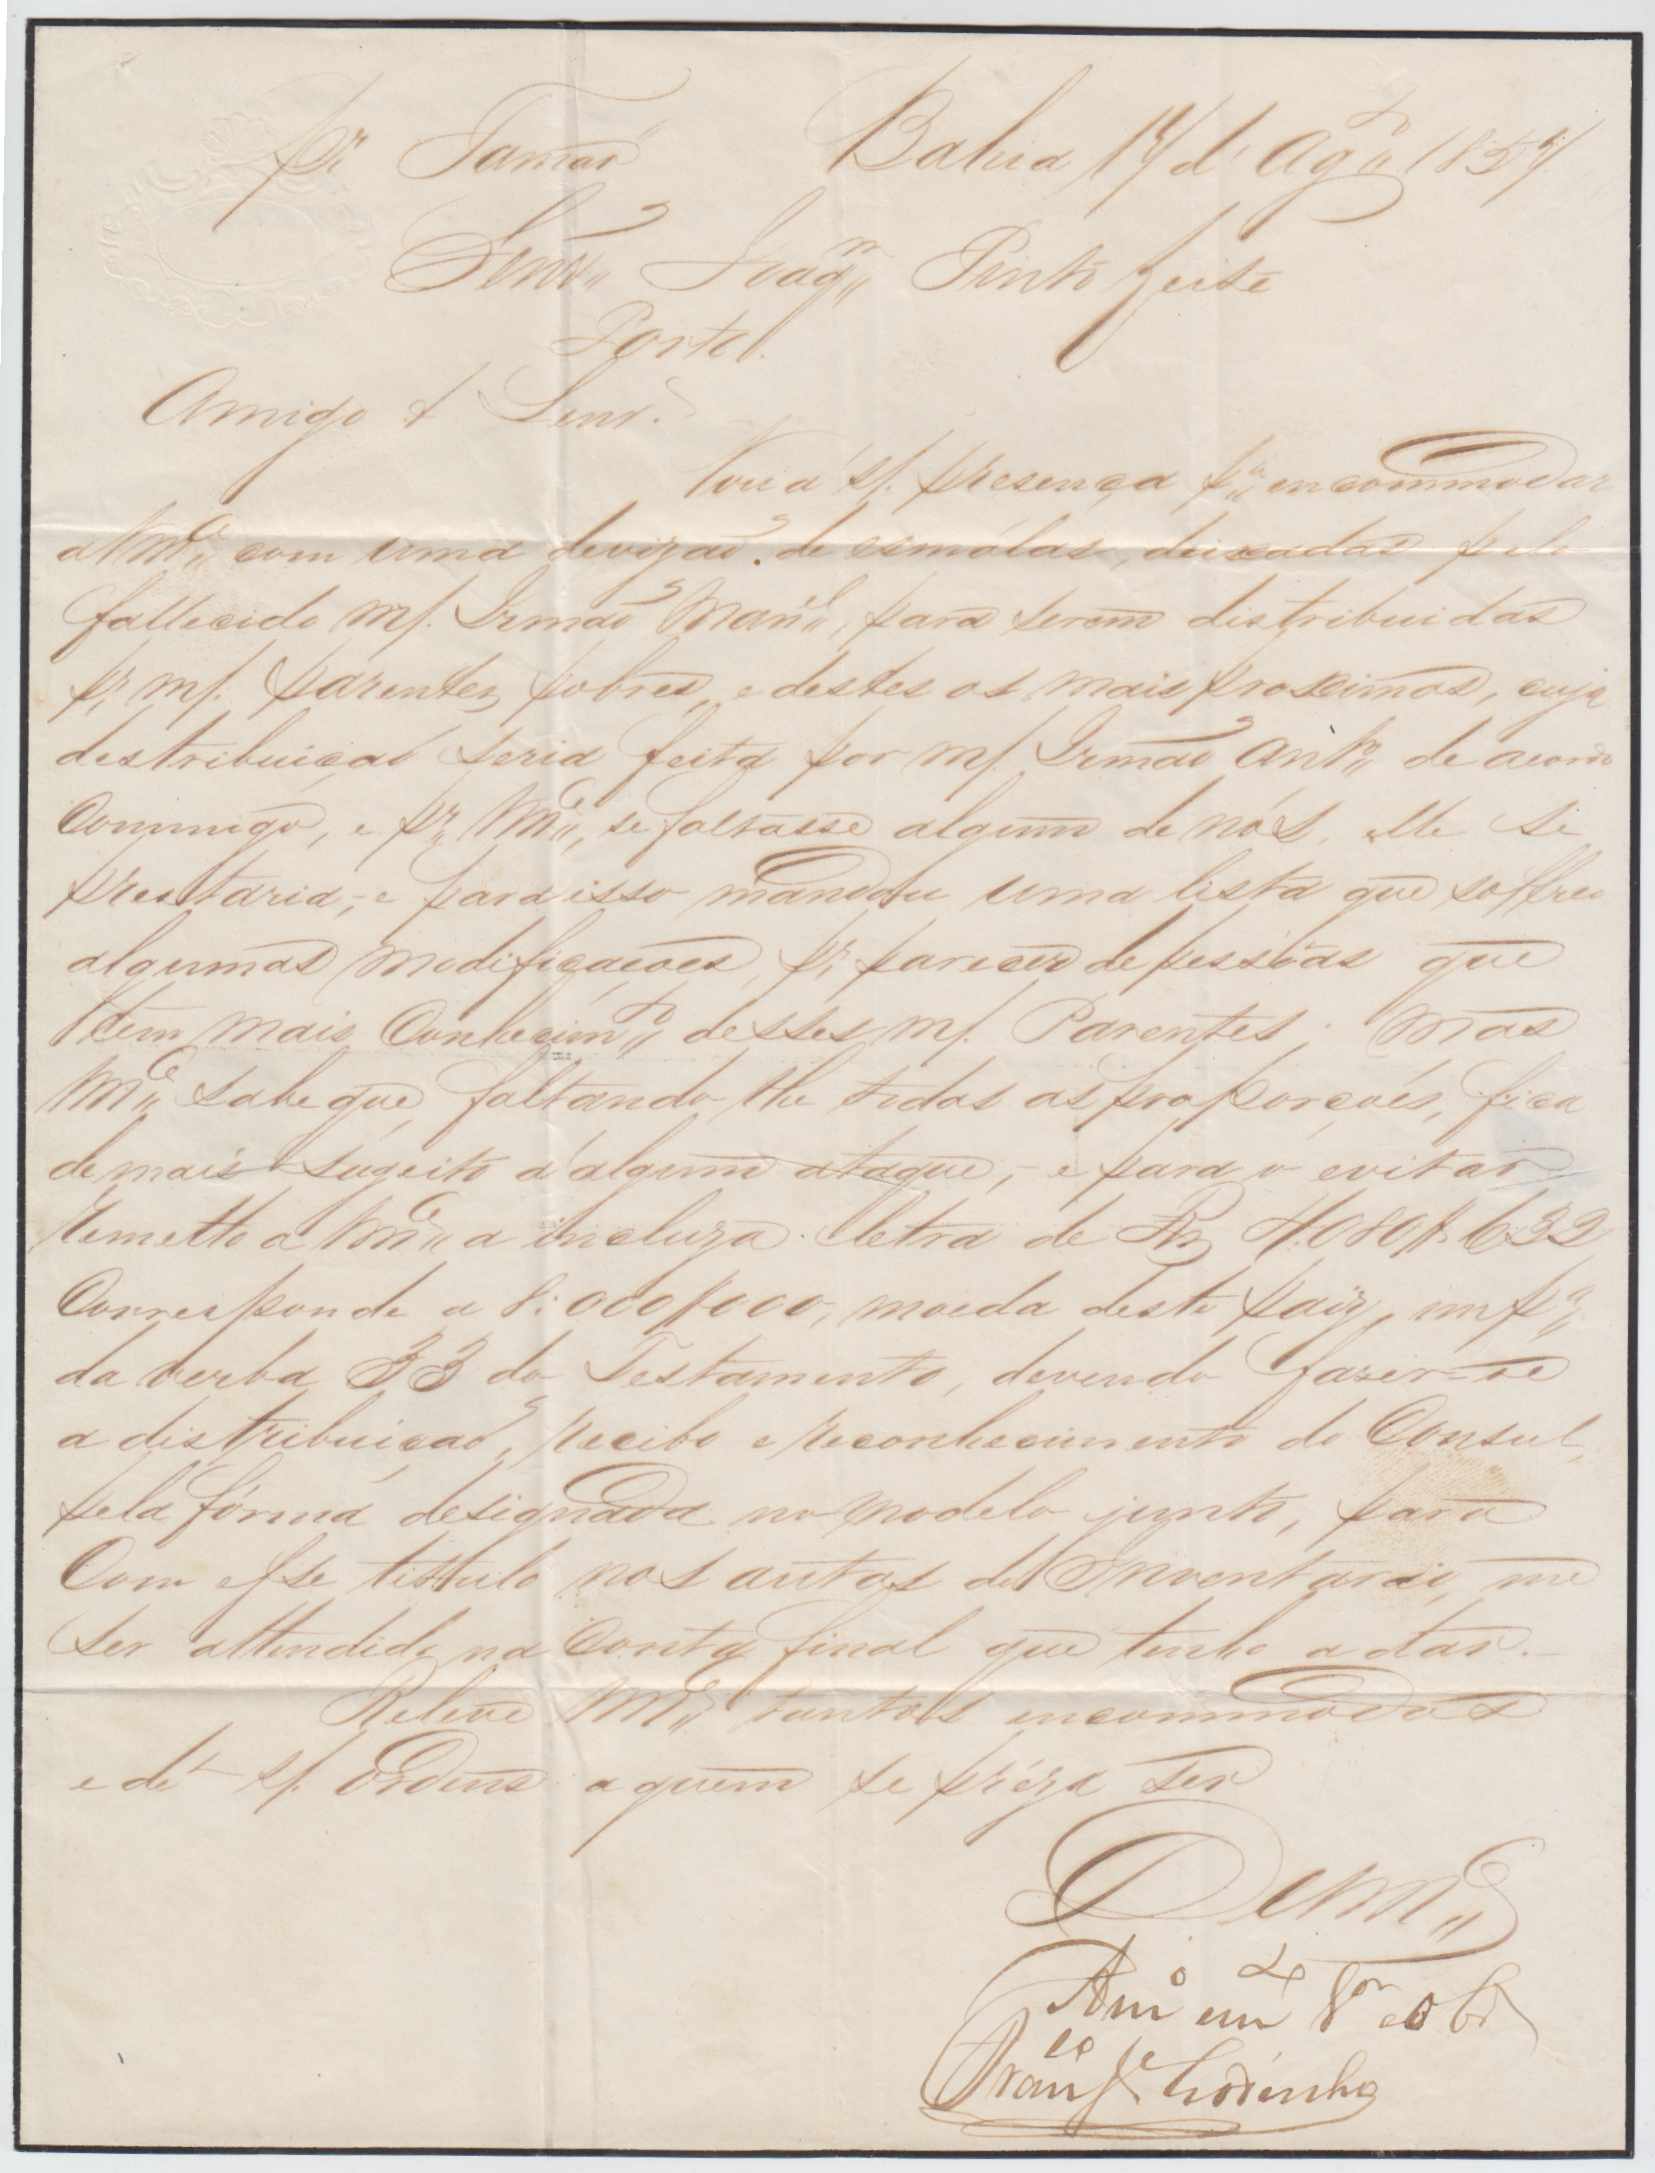 Pr. Tamar Bahia 14 d' Ag.to 1854
Senr. Joaq.m Pinto Leite
Porto.
Amigo & Senr.
Vou á s/. presença p.a encommodar
a Vm.ce com uma devizaõ de esmólas, deixadas pelo
fallecido m/. Irmaõ Man.el, para serem distribuidas
pr. m/. parentes pobres, e destes os mais proximos, cuja
destribuiçaõ seria feita por m/. Irmaõ Ant.o de acordo
Commigo, e pr. Vm.ce, se faltasse algum de nós, elle se
prestaria, - e para isso mandou uma lista que soffreu
algumas modificaçoes, pr. parecer de pessoas que
tem mais Conhecim.to desses m/. Parentes; mas
Vm.ce sabe que, faltando-lhe todas as proporçoẽs, fica
demais sugeito a algum ataque, - e para o evitar
remetto a Vm.ce a incluza letra de Rs 4:080$632
Corresponde a 8:000$000, moeda deste paiz, imp.a
da verba 33 do Testamento, devendo fazer-se
a distribuiçaõ, recibo e reconhecimento do Consul,
pela fórma designada no modelo junto, para
Com esse titulo nos autos do Inventario, me
ser attendido na Conta final que tenho a dar. -
Releve Vm.ce tantos encommodos
e dê s/. Ordens a quem se préza ser
De Vm.ce
Am.o Vor. e Ob.
Fran.co Godinho